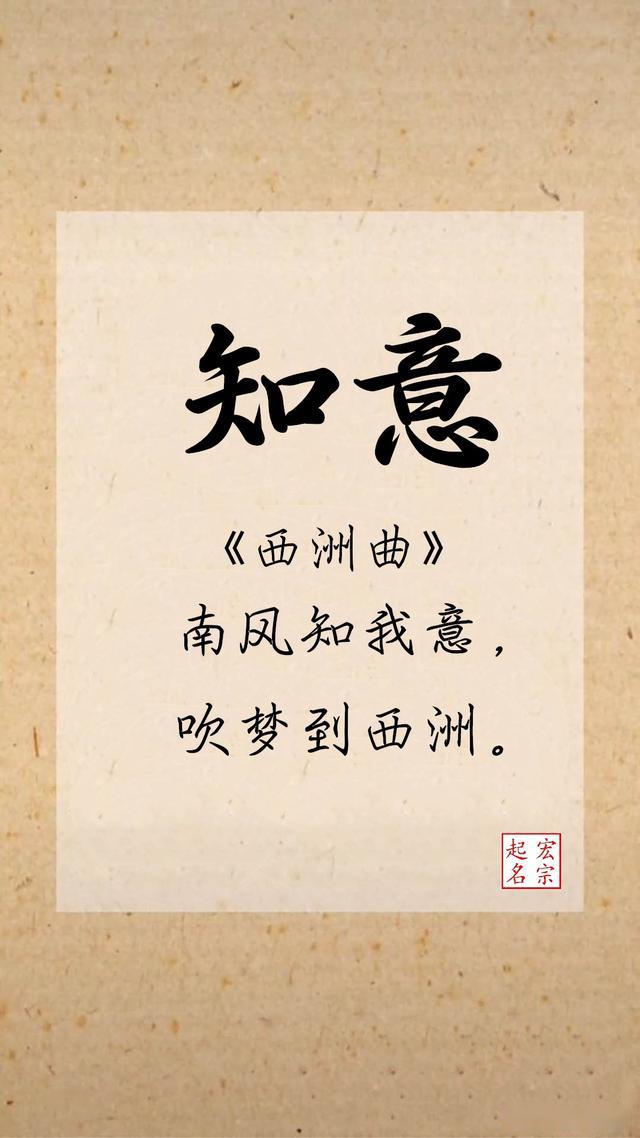 知意
《西洲曲》
南风知我意，
吹梦到西洲。
宏宗
起名